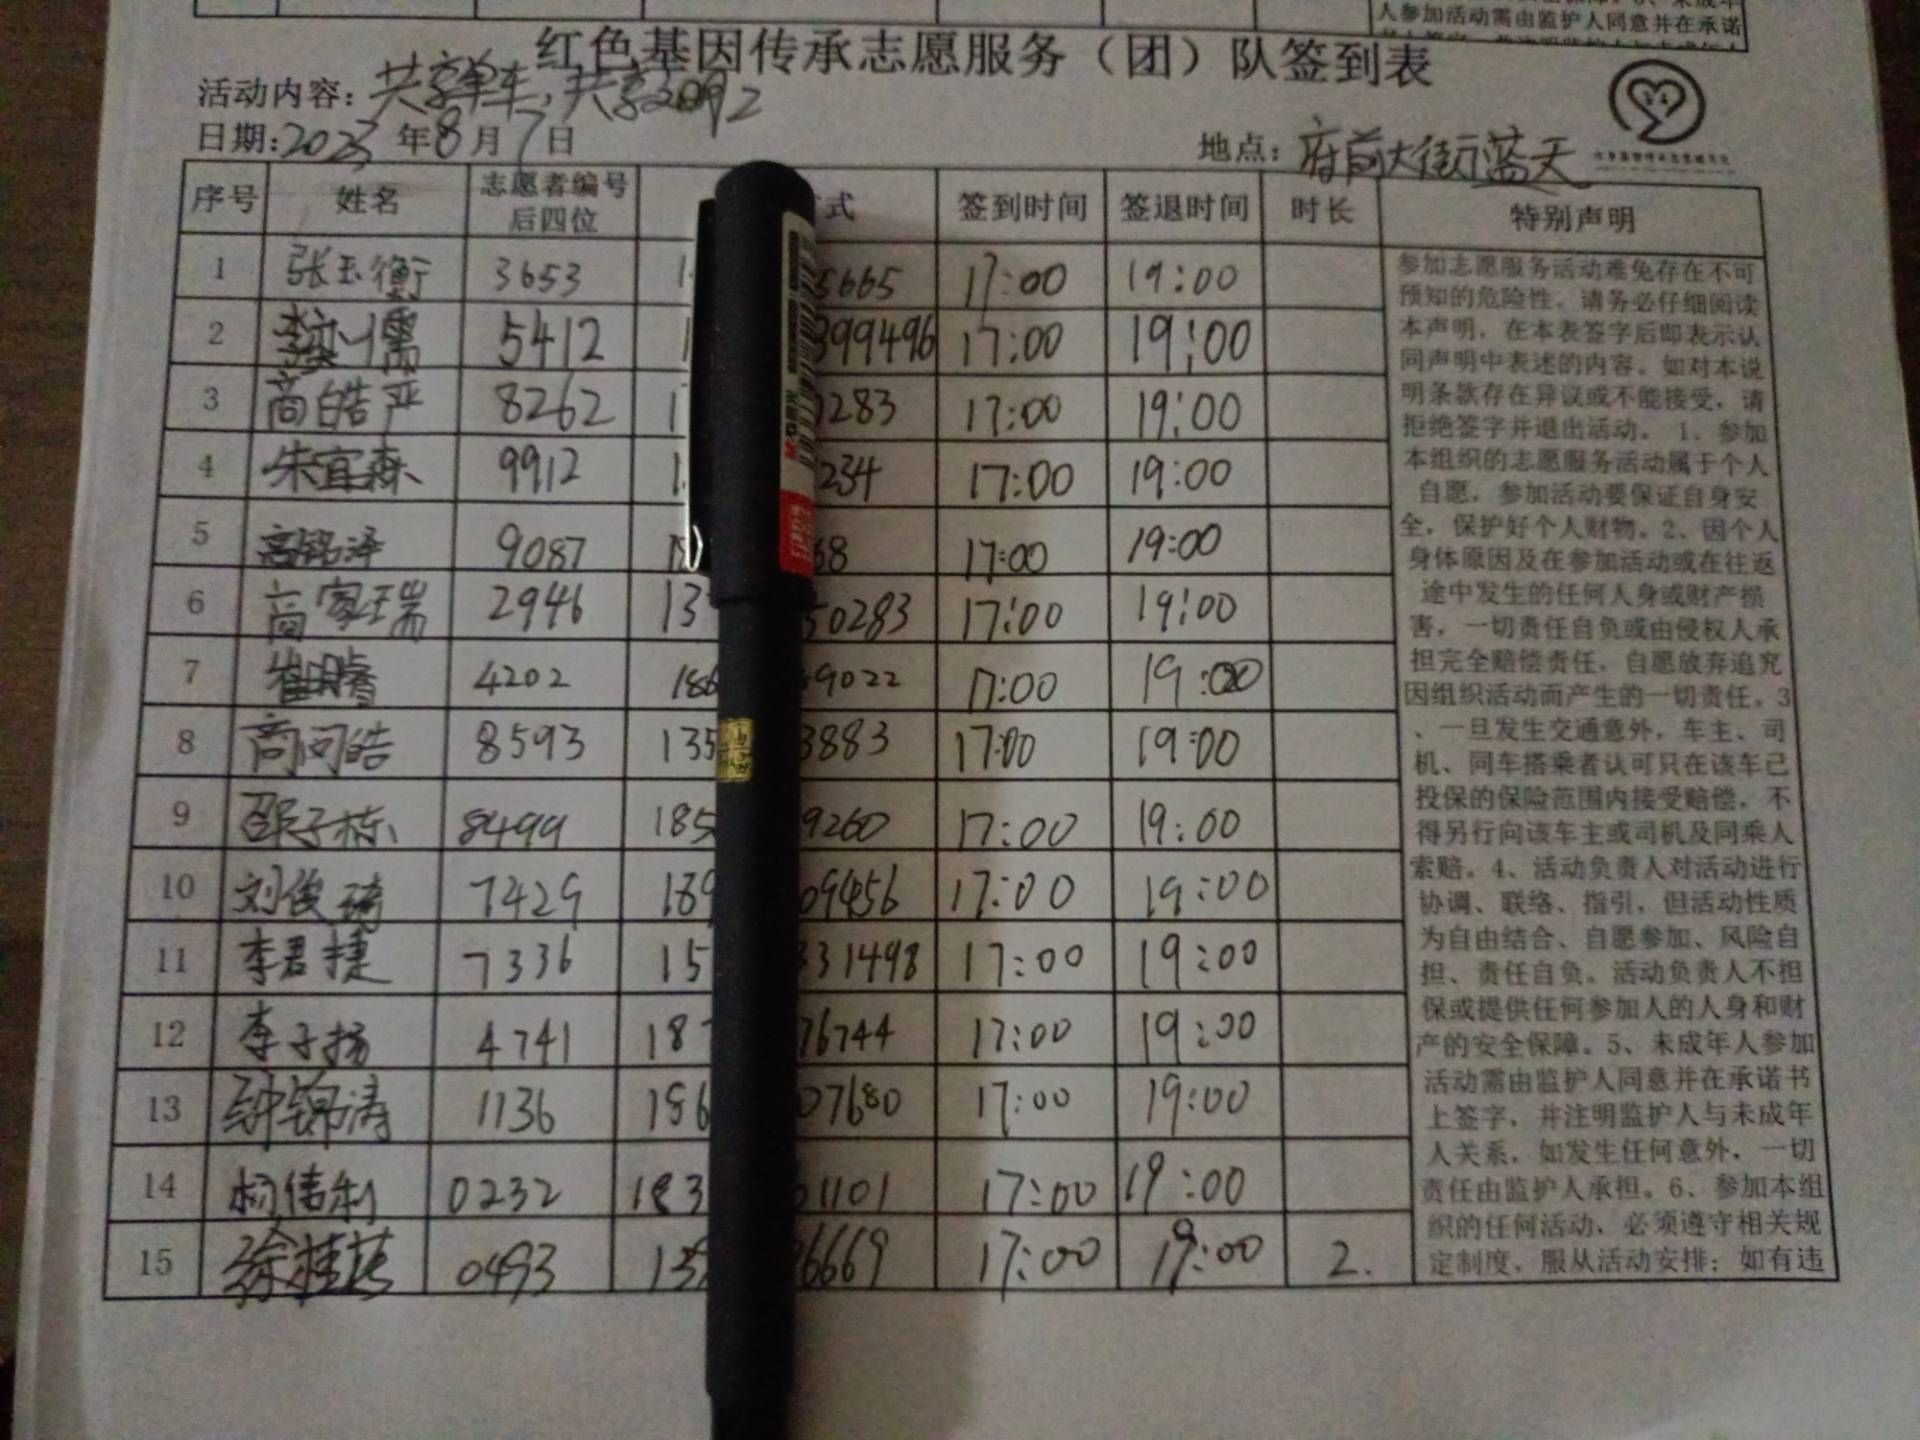 人参加活动需由监护人同意并在承诺
红色基因传承志愿服务（团）队签到表
活动内容：共享单车，共享文明2
日期:2023年8月7日 地点：府前大街蓝天
序号 姓名 志愿者编号后四位 式 签到时间 签退时间 时长 特别声明
1 张玉衡 3653 5665 17:00 19:00
2 儒 5412 1 399496 17:00 19:00
3 高皓严 8262 1 283 17:00 19:00
4 朱宜森 9912 1 234 17:00 19:00
5 高铭泽 9087 68 17:00 19:00
6 高家瑞 2946 13 50283 17:00 19:00
7 崔明睿 4202 186 9022 17:00 19:00
8 商问皓 8593 135 3883 17:00 19:00
9 邵子栋 8499 185 9260 17:00 19:00
10 刘俊琦 7429 189 09456 17:00 19:00
11 李君捷 7336 15 331498 17:00 19:00
12 李子扬 4741 18 76744 17:00 19:00
13 钟锦涛 1136 186 07680 17:00 19:00
14 杨伟利 0232 183 01101 17:00 19:00
15 徐桂 0493 13 6669 17:00 19:00 2.
参加志愿服务活动难免存在不可
预知的危险性。请务必仔细阅读
本声明，在本表签字后即表示认
同声明中表述的内容。如对本说
明条款存在异议或不能接受，请
拒绝签字并退出活动。 1、参加
本组织的志愿服务活动属于个人
自愿，参加活动要保证自身安
全，保护好个人财物。2、因个人
身体原因及在参加活动或在往返
途中发生的任何人身或财产损
害，一切责任自负或由侵权人承
担完全赔偿责任，自愿放弃追究
因组织活动而产生的一切责任。3
、一旦发生交通意外，车主、司
机、同车搭乘者认可只在该车已
投保的保险范围内接受赔偿，不
得另行向该车主或司机及同乘人
索赔。4、活动负责人对活动进行
协调、联络、指引，但活动性质
为自由结合、自愿参加、风险自
担、责任自负。活动负责人不担
保或提供任何参加人的人身和财
产的安全保障。5、未成年人参加
活动需由监护人同意并在承诺书
上签字，并注明监护人与未成年
人关系，如发生任何意外，一切
责任由监护人承担。6、参加本组
织的任何活动，必须遵守相关规
定制度，服从活动安排；如有违